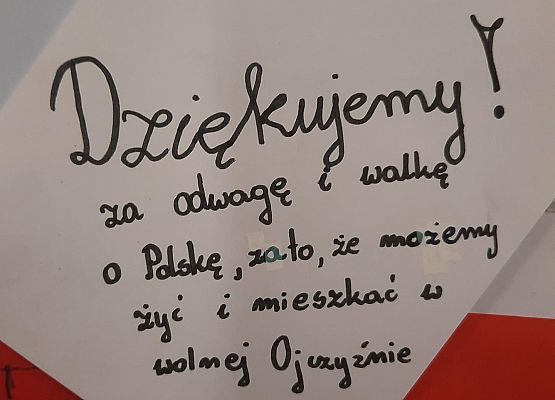 Dziękujemy!
za odwagę i walkę
o Polskę, za to, że możemy
żyć i mieszkać w
wolnej Ojczyźnie